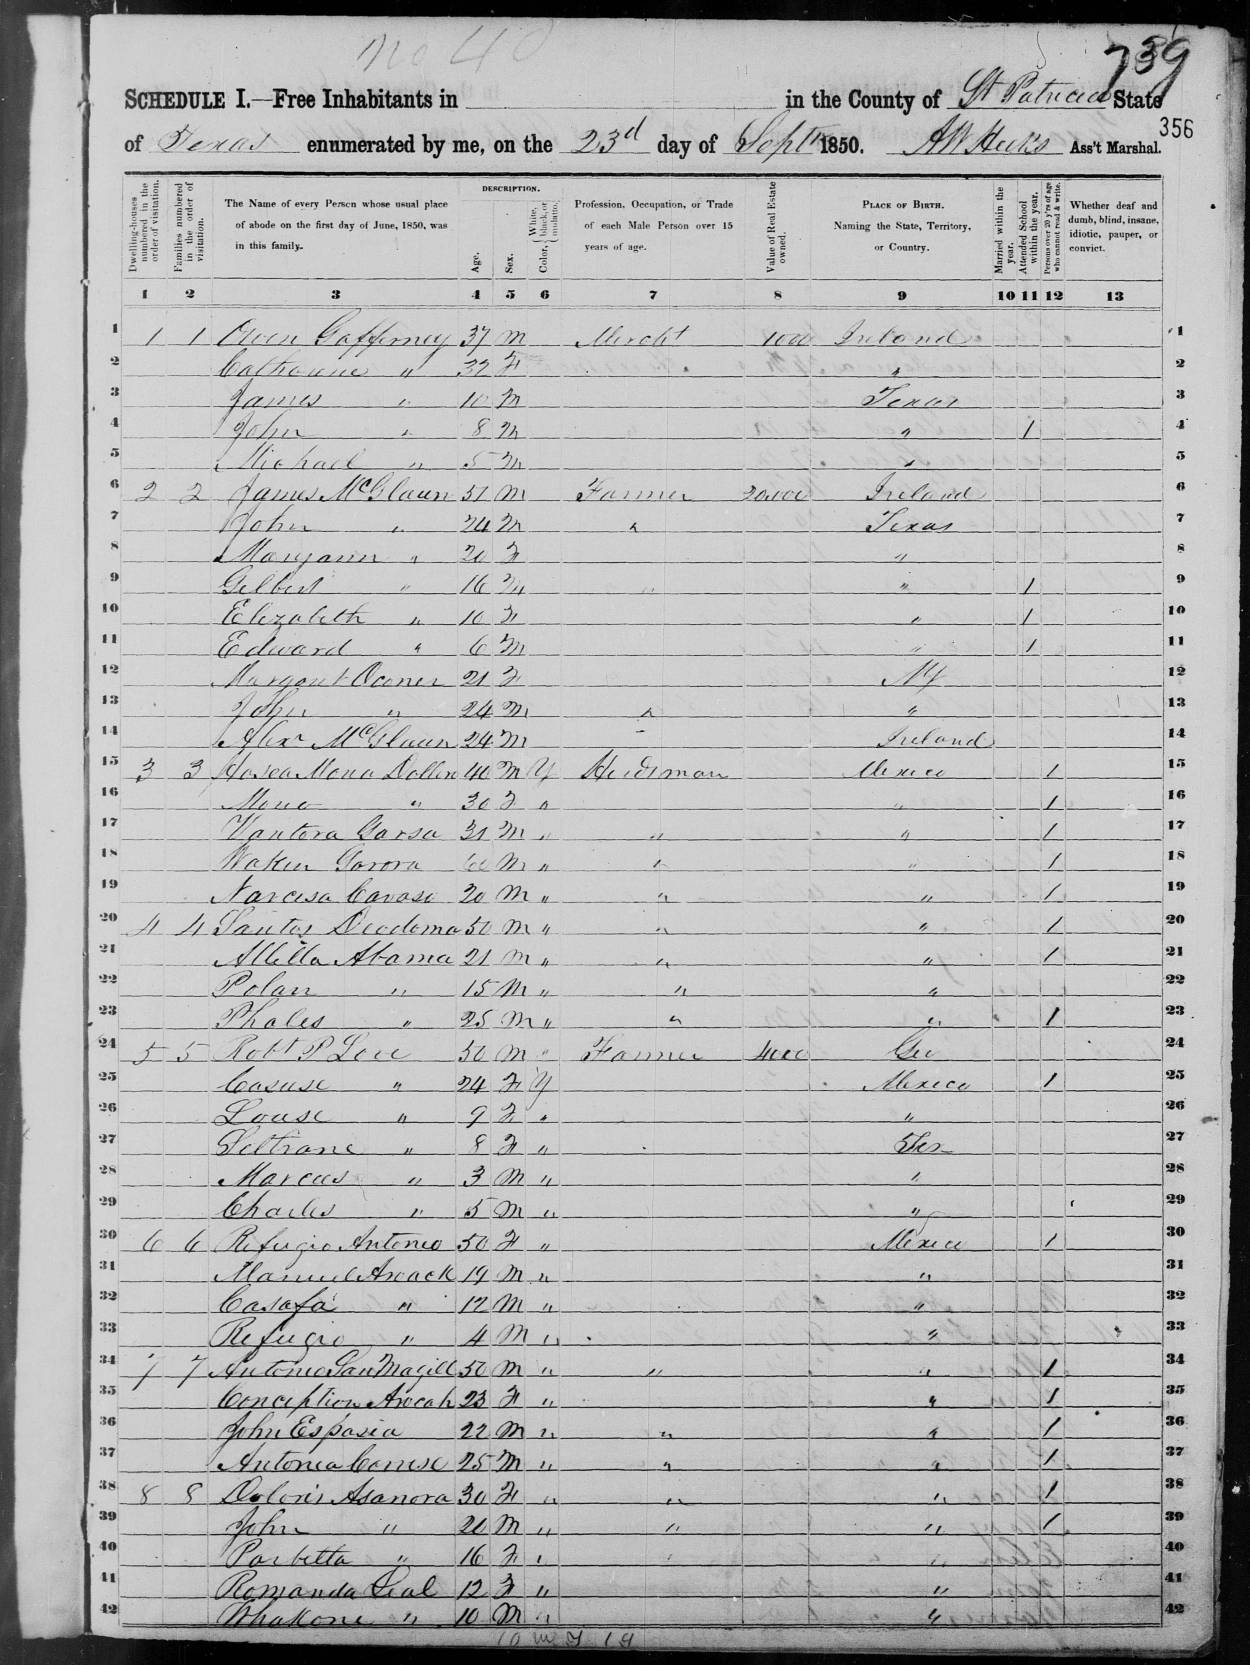 No 4
739
SCHEDULE I.—Free Inhabitants in in the County of St Patricio State
356
of Texas enumerated by me, on the 23d day of Septr 1850. Ass't Marshal.
Dwelling-houses numbered in the order of visitation.
Families numbered in the order of visitation.
The Name of every Person whose usual place of abode on the first day of June, 1850, was in this family.
DESCRIPTION.
Age.
Sex.
Color, { White, black, or mulatto.
Profession, Occupation, or Trade of each Male Person over 15 years of age.
Value of Real Estate owned.
PLACE OF BIRTH. Naming the State, Territory, or Country.
Married within the year.
Attended School within the year.
Persons over 20 y'rs of age who cannot read & write.
Whether deaf and dumb, blind, insane, idiotic, pauper, or convict.
1 2 3 4 5 6 7 8 9 10 11 12 13
1 1 1 Owen Gafferney 37 M Mercht 1000 Ireland 1
2 Catharine " 32 F " 2
3 James " 10 M Texas 3
4 John " 8 M " 1 4
5 Michael " 5 M " 5
6 2 2 James McGlaun 51 M Farmer 20,000 Ireland 6
7 John " 24 M " Texas 7
8 Maryann " 20 F " 8
9 Gilbert " 16 M " " 1 9
10 Elizabeth " 10 F " 1 10
11 Edward " 6 M " 1 11
12 Margaret Oconer 21 F NY 12
13 John " 24 M " " 13
14 Alexr McGlaun 24 M " Ireland 14
15 3 3 Hosea Mona Dollen 40 M Y Herdsman Mexico 1 15
16 Mona " 30 F " " 1 16
17 Vantora Garsa 31 M " " " 1 17
18 Waken M " " " 1 18
19 Narcisa Cavaso 20 M " " " 1 19
20 4 4 Santos Deodoma 50 M " " " 1 20
21 Abama 21 M " " " 1 21
22 Polan " 15 M " " " 22
23 Phales " 25 M " " " 1 23
24 5 5 Robt P Lee 50 M " Farmer 4000 Geo 24
25 Casuse " 24 F Y Mexico 1 25
26 Louse " 9 F " " 26
27 Seltrane " 8 F " Tex 27
28 Marcus " 3 M " " 28
29 Charles " 5 M " " 29
30 6 6 Refugio Antonio 50 F " Mexico 1 30
31 Manuel Avack 19 M " " 31
32 Casafa " 12 M " " 32
33 Refugio " 4 M " " 33
34 7 7 Antonio San Magill 50 M " " " 1 34
35 Conception Avocah 23 F " " 1 35
36 John Esparia 22 M " " " 1 36
37 Antonio Comse 25 M " " " 1 37
38 8 8 Doloris Asanora 30 F " " " 1 38
39 John " 20 M " " " 1 39
40 Parbetta " 16 F " " " 40
41 Romanda Leal 12 F " " 41
42 Whakone " 10 M " " 42